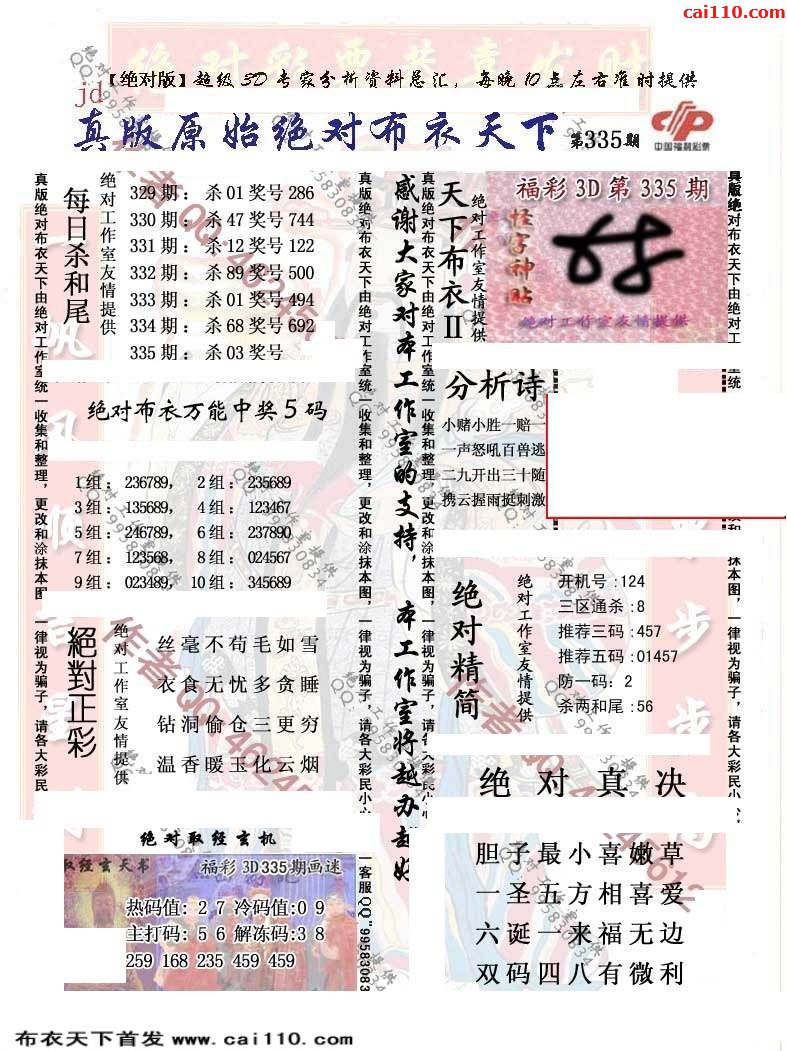 cai110.com
绝对彩票恭喜发财
【绝对版】超级3D专家分析资料总汇，每晚10点左右准时提供
jd
真版原始绝对布衣天下 第335期
中国福利彩票
真版绝对布衣天下由绝对工作室统一收集和整理，更改和涂抹本图，一律视为骗子，请各大彩民小心
每日杀和尾
绝对工作室友情提供
329期：杀01奖号286
330期：杀47奖号744
331期：杀12奖号122
332期：杀89奖号500
333期：杀01奖号494
334期：杀68奖号692
335期：杀03奖号
绝对布衣万能中奖5码
1组：236789， 2组：235689
3组：135689， 4组：123467
5组：246789， 6组：237890
7组：123568， 8组：024567
9组：023489， 10组：345689
絕對正彩
绝对工作室友情提供
丝毫不苟毛如雪
衣食无忧多贪睡
钻洞偷仓三更穷
温香暖玉化云烟
绝对取经玄机
取经玄天书
福彩3D335期画迷
热码值：27冷码值:09
主打码：56解冻码:38
259 168 235 459 459
真版绝对布衣天下由绝对工作室统一收集和整理，更改和涂抹本图，一律视为骗子，请各大彩民小心
一客服QQ"99583083
感谢大家对本工作室的支持，本工作室将越办越好
真版绝对布衣天下由绝对工作室统一收集和整理，更改和涂抹本图，一律视为骗子，请各大彩民小心
天下布衣II
绝对工作室友情提供
福彩3D第335期
怪字神贴
绝对工作室友情提供
分析诗
小赌小胜一赔一
一声怒吼百兽逃
二九开出三十随
携云握雨挺刺激
绝对精简
绝对工作室友情提供
开机号:124
三区通杀:8
推荐三码:457
推荐五码:01457
防一码：2
杀两和尾:56
绝对真决
胆子最小喜嫩草
一圣五方相喜爱
六诞一来福无边
双码四八有微利
布衣天下首发 www.cai110.com